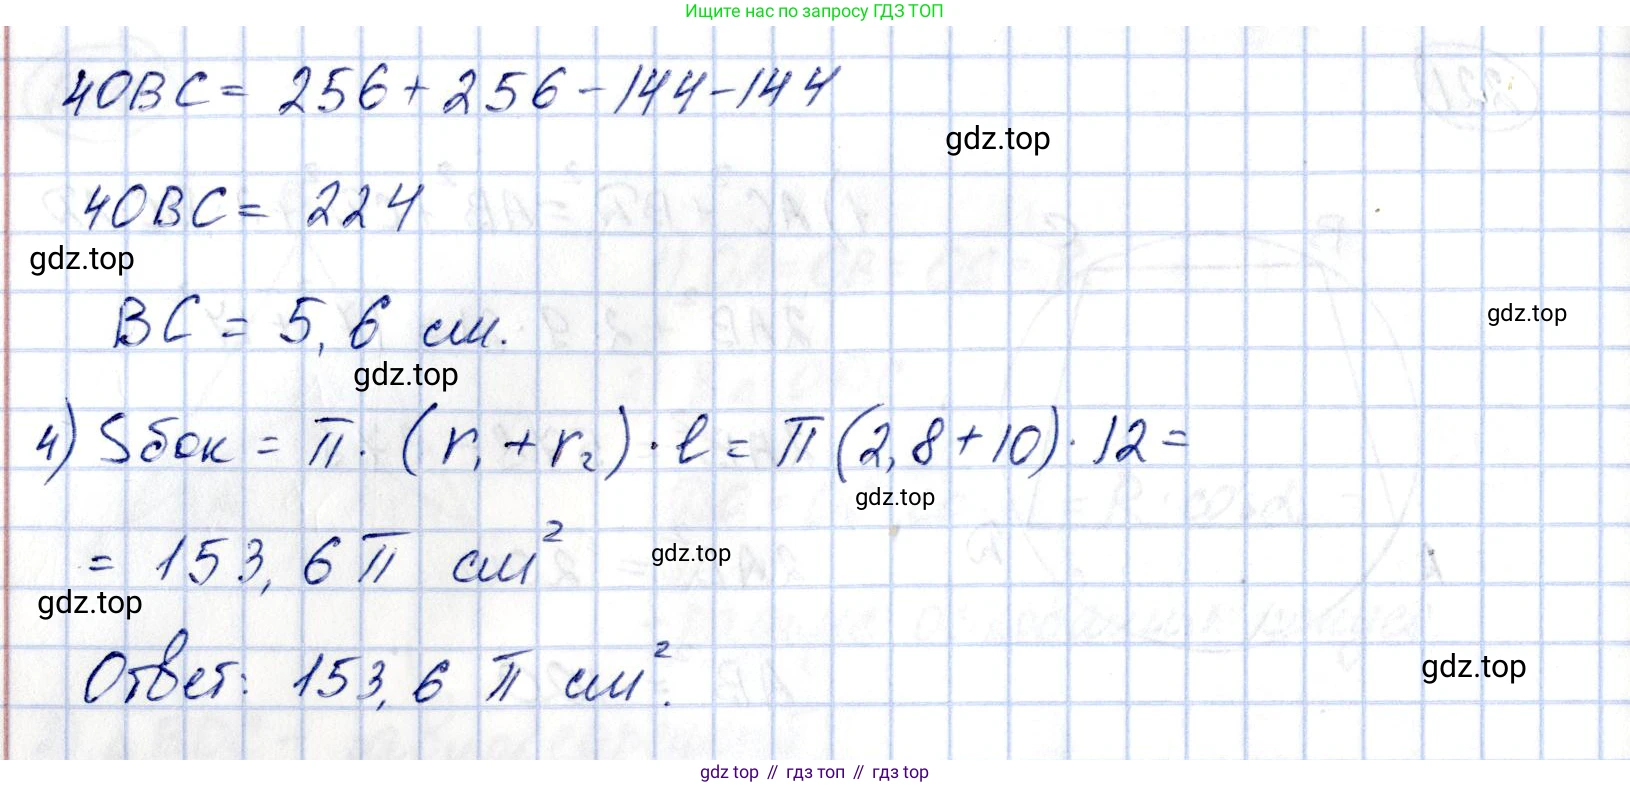 Ищите нас по запросу ГДЗ ТОП
40BC = 256 + 256 - 144 - 144
gdz.top
40BC = 224
gdz.top
BC = 5,6 см.
gdz.top
gdz.top
4) Sбок = π · (r₁ + r₂) · l = π (2,8 + 10) · 12 =
gdz.top
= 153,6 π см²
gdz.top
gdz.top
Ответ: 153,6 π см².
gdz.top
gdz top // гдз топ // гдз top